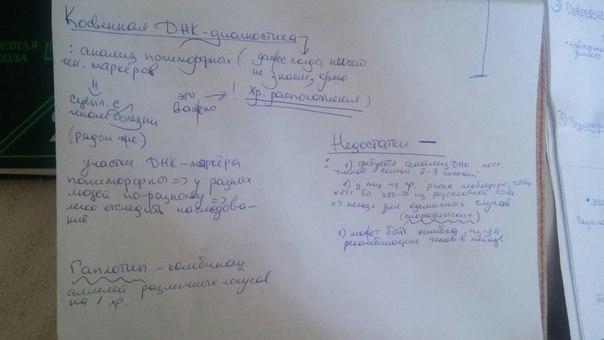 Косвенная ДНК-диагностика
: анализ полиморфных
ген. маркёров
(даже когда ничего
не знаем, кроме
! хр. расположения)
это
важно
сцепл. с
геном болезни
(рядом же)
участки ДНК-маркёра
полиморфны => у разных
людей по-разному =>
легко отследить наследова-
ние
Гаплотип - комбинац
аллелей различных локусов
на 1 хр.
Недостатки
:
1) требуется анализ ДНК
членов семьи 2-3 покол
2) у лиц из гр. риска необходимо, чтобы
хотя бы кто-то из родословной болел
=> нельзя для единичных случаев
(спорадических)
3) может быть ошибка из-за
рекомбинации генов в мейозе